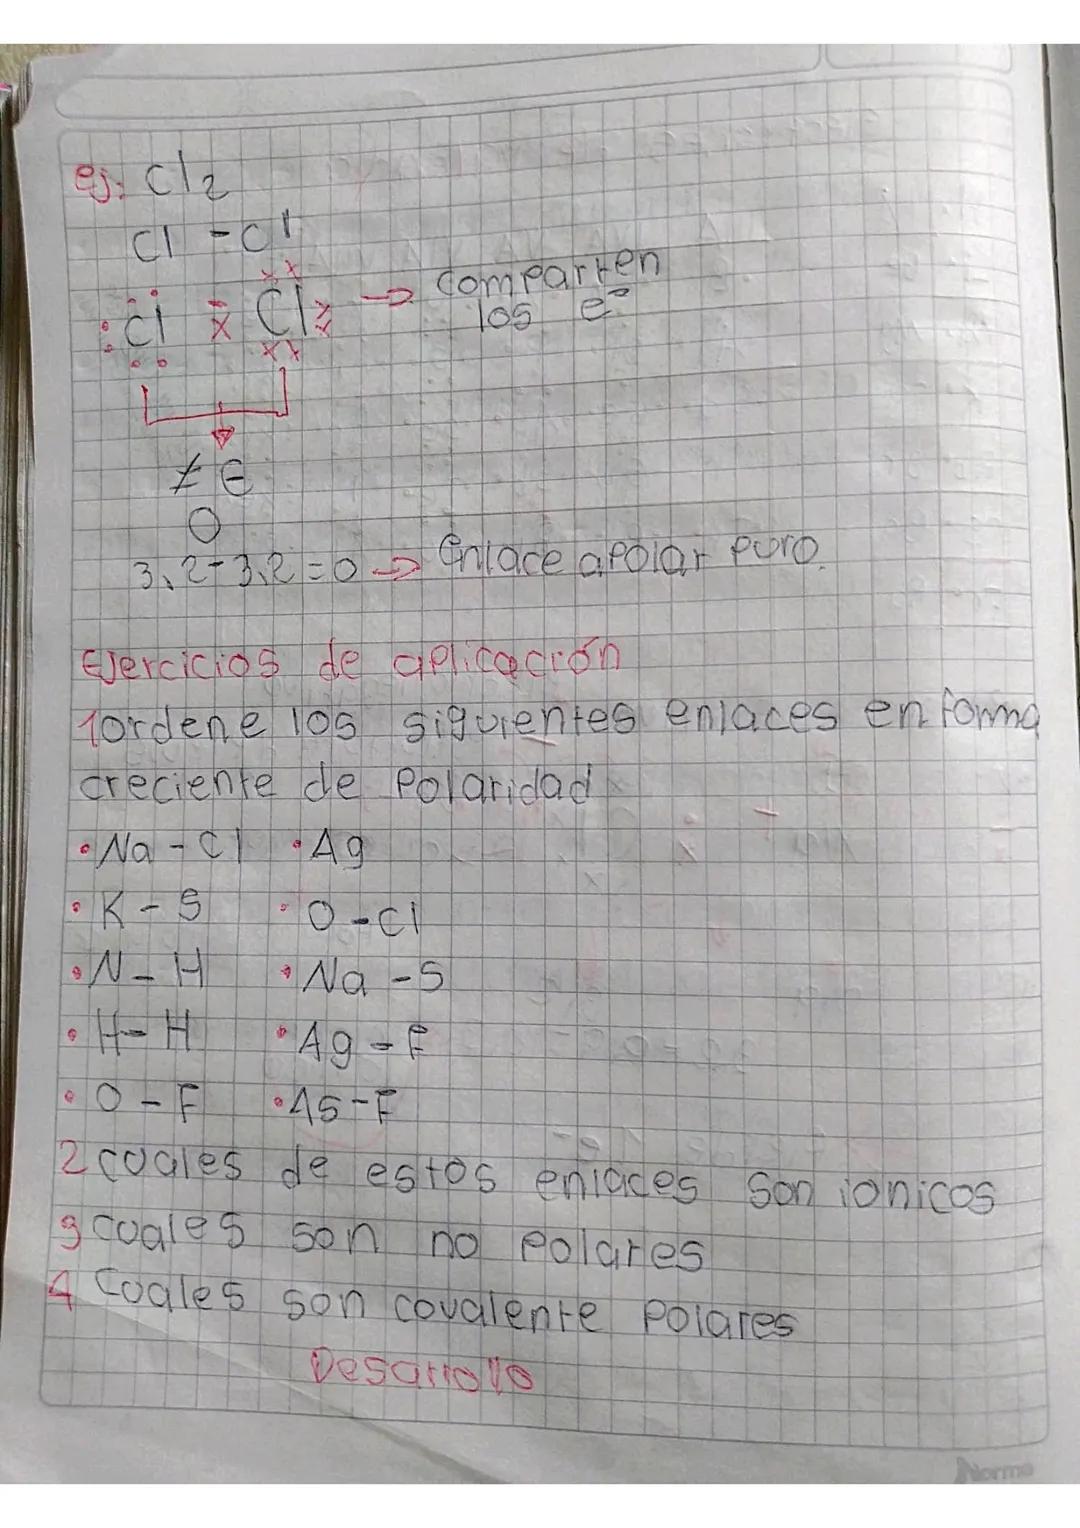 ej: Cl2
Cl - Cl
Cl Cl → comparten
los e-
≠ E
0
3,2-3,2=0 → Enlace apolar puro.
Ejercicios de aplicación
1 ordene los siguientes enlaces en forma
creciente de Polaridad
• Na - Cl • Ag
• K - S • O - Cl
• N - H • Na - S
• H - H • Ag - F
• O - F • As - F
2 cuales de estos enlaces son ionicos
3 cuales son no polares
4 cuales son covalente Polares
Desarrollo
Norma